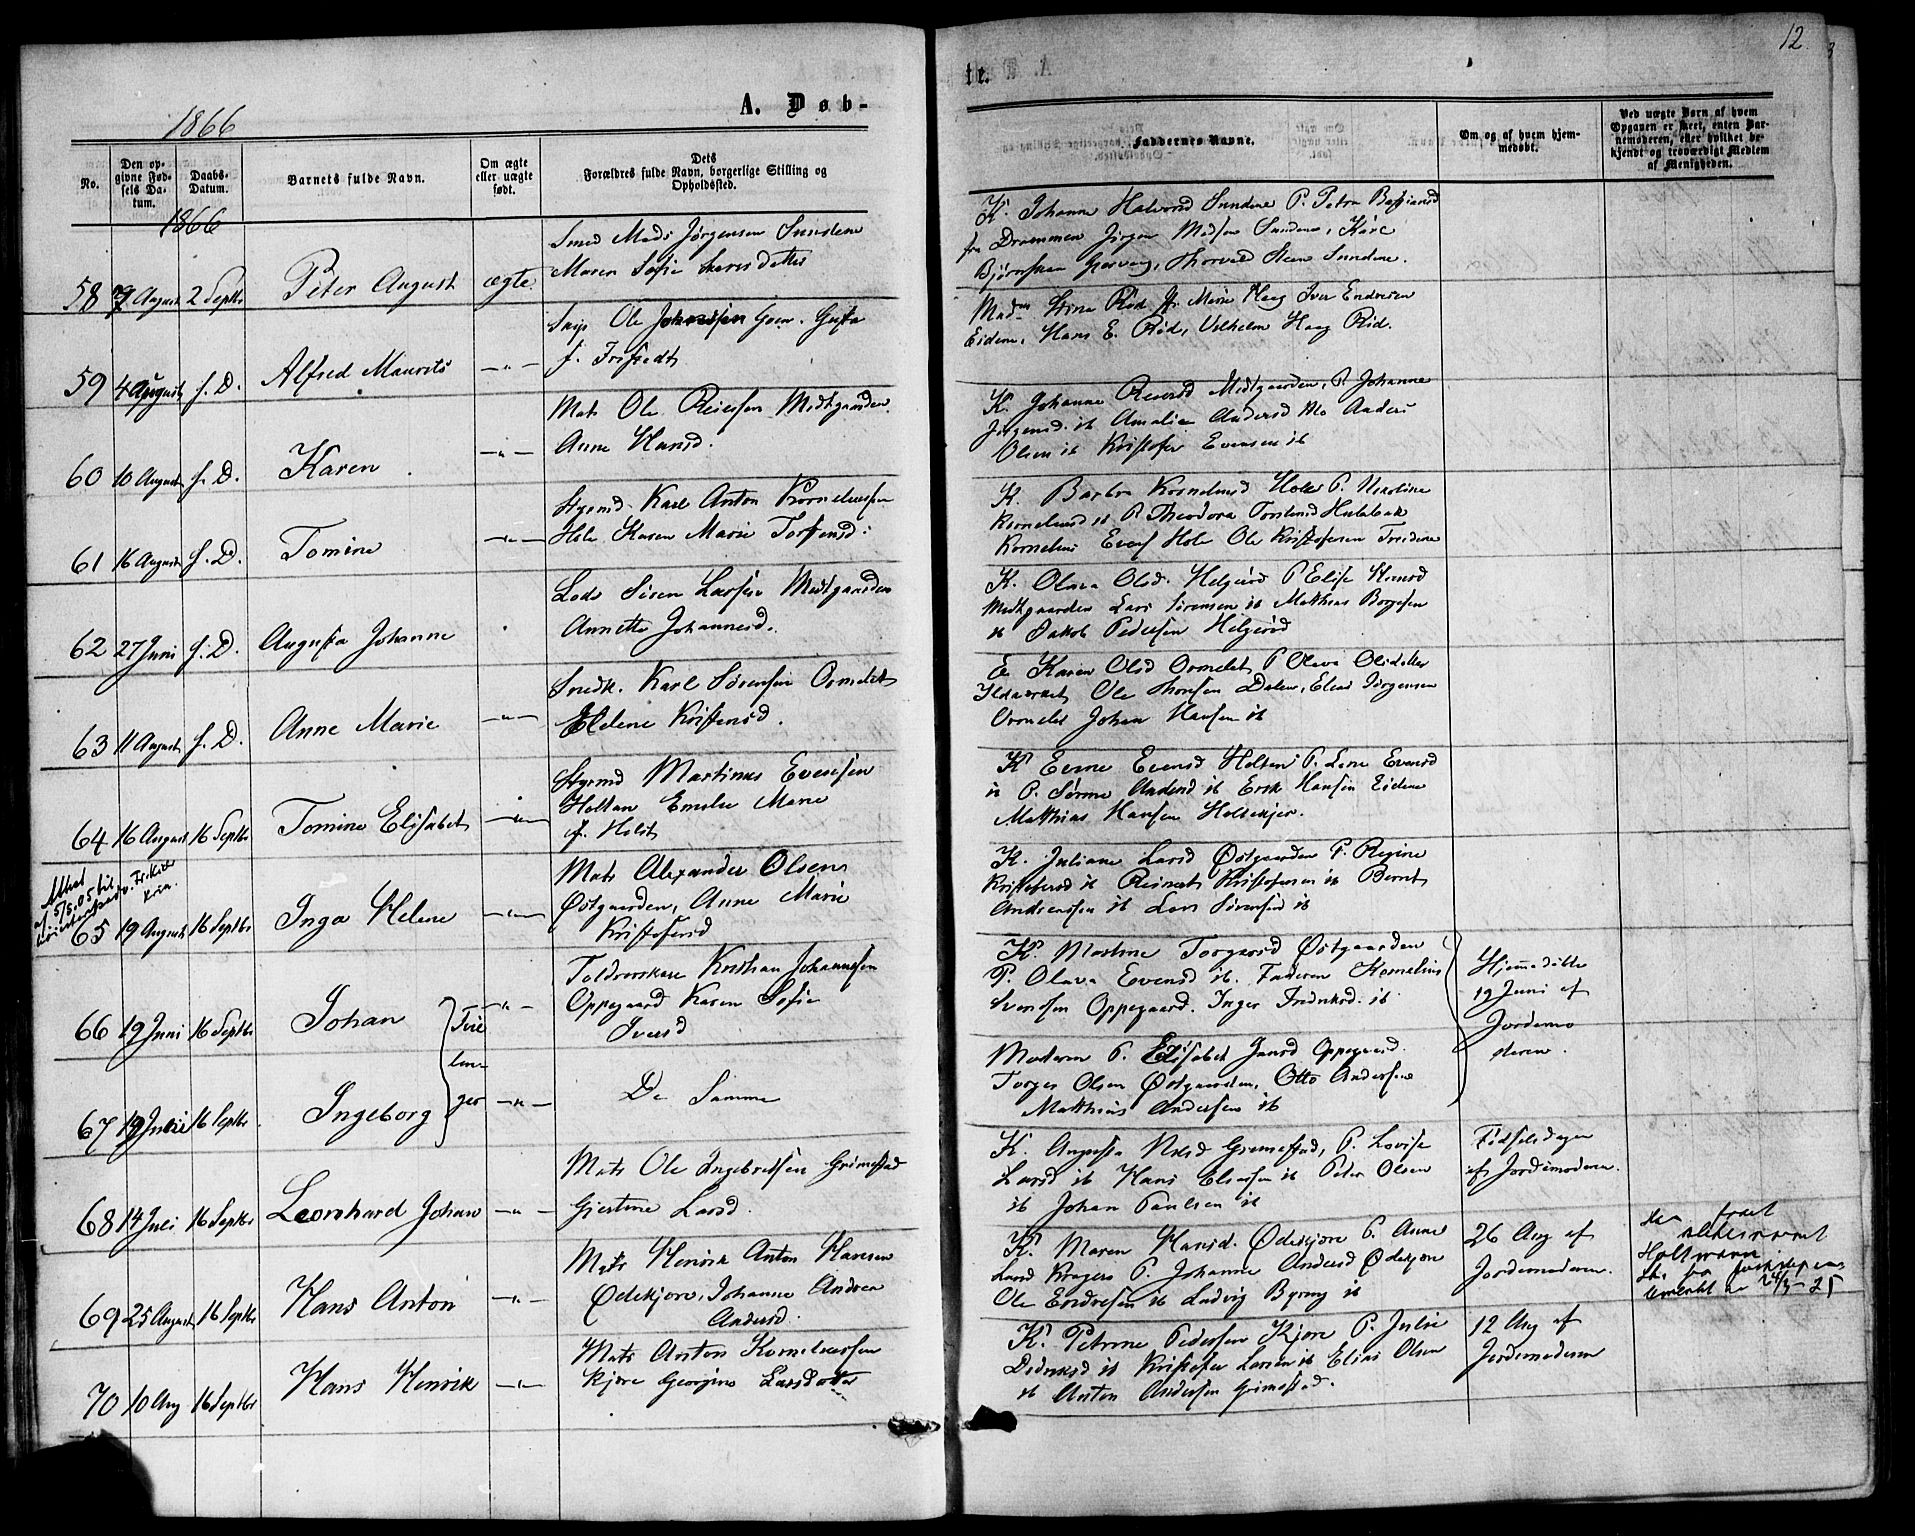 12
1866
A. Døb-
te.
No.
Den op-
givne Fød-
sels Da-
tum.
Daabs-
Datum.
Barnets fulde Navn.
Om ægte
eller uægte
født.
Dets
Forældres fulde Navn, borgerlige Stilling og
Opholdssted.
Faddernes Navne.
Om og af hvem hjem-
medøbt.
Ved uægte Børn af hvem
Opgaven er skeet, enten Bar-
nemoderen, eller hvilket be-
kjendt og troværdigt Medlem
af Menigheden.
1866
58 August 2 Septbr Peter August ægte
Smed Mads Jørgensen Sundene
Maren Sofie
K. Johanne Halvorsd Sundene P. Petra
fra Drammen Jørgen Madsen Sundene, Kåre
Thorvald Steen Sundene.
59 4 August s. D. Alfred Maurits —"—
Skip Ole Johannesen
Stina Rød Marie Haag Iver Endresen
Eidene, Hans E. Rød, Vilhelm Haag Rød.
60 10 August s. D. Karen —"—
Mats Ole Reiersen Midtgaarden
Anne Hansd.
K. Johanne Reiersd Midtgaarden, P. Johanne
Jørgensd. ib Amalie Andersd Mo Anders
Olsen ib Kristofer Evensen ib
61 16 August s. D. Tomine —"—
Styrmd. Karl Anton Korneliussen
Hole Karen Marie Torstensd.
K. Barbra Korneliusd Hole P. Nikoline
Korneliusd ib P. Theodora Torstensd Hulebak
Kornelius Evens Hole Ole Kristofersen
62 27 Juni s. D. Augusta Johanne
Lods Søren Larsen Midtgaarden
Annette Johannesd.
K. Olava Olsd. Helgerød P Elise Hansd
Midtgaarden Lars Sørensen ib Matthias Borgesen
ib Jakob Pedersen Helgerød
63 11 August s. D. Anne Marie —"—
Snedk. Karl Sørensen Ormelet
Helene Kristensd.
E Karen Olsd Ormelet P Olava Olsdatter
Ole Thorsen Dalen, Elias Jørgensen
Ormelet Johan Hansen ib
64 16 August 16 Septbr Tomine Elisabet —"—
Styrmd Martinus Evensen
Holtan Emelie Marie
f. Holst
K Evensd Holtan P. Lene Evensd
ib P. Sørine Andersd ib Erik Hansen Eidene
Matthias Hansen Holtekjær.
65 19 August 16 Septbr Inga Helene —"—
Mats Alexander Olsen
Østgaarden, Anne Marie
Kristofersd
K. Juliane Larsd Østgaarden P. Regine
Kristofersd ib Reinert Kristofersen ib Bernt
Andreassen ib Lars Sørensen ib
66 19 Juni 16 Septbr Johan —"—
Tvil-
lin-
ger
Toldroerskarl Kristian Johannesen
Oppegaard Karen Sofie
Iversd
K. Martine Torgersd Østgaarden
P. Olava Evensd ib. Faderen Kornelius
Svendsen Oppegaard. Inger Fredriksd. ib
Hjemmedøbte
19 Juni af
Jordemo
deren.
67 19 Juni 16 Septbr. Ingeborg —"—
De Samme
Moderen P. Elisabet Jansd Oppegaard.
Torger Olsen Østgaarden, Otto Andersen
Matthias Andersen ib
68 14 Juli 16 Septbr Leonhard Johan —"—
Mats Ole Ingebretsen Grimestad
Gjertine Larsd.
K. Augusta Nilsd Grimestad, P. Lovise
Larsd ib Hans Elsesen ib Peter Olsen
ib Johan Paulsen ib
Fødselsdagen
af Jordemoderen.
69 25 August 16 Septbr Hans Anton —"—
Mats Henrik Anton Hansen
Ødekjære, Johanne Andrea
Andersd.
K. Maren Hansd. Ødekjære P. Anne
Larsd Kragerø P. Johanne Andersd Ødekjære
Ole Endresen ib Ludvig Bjerng ib
26 Aug af
Jordemoderen.
Holtmann
24/3-25
70 10 Aug 16 Septbr Hans Henrik —"—
Mats Anton Korneliussen
Kjære Georgine Larsdatter
K. Petrine Pedersen Kjære P. Julie
Didriksd ib Kristofer Larsen ib Elias Olsen
ib Anton Andersen Grimestad.
12 Aug af
Jordemoderen